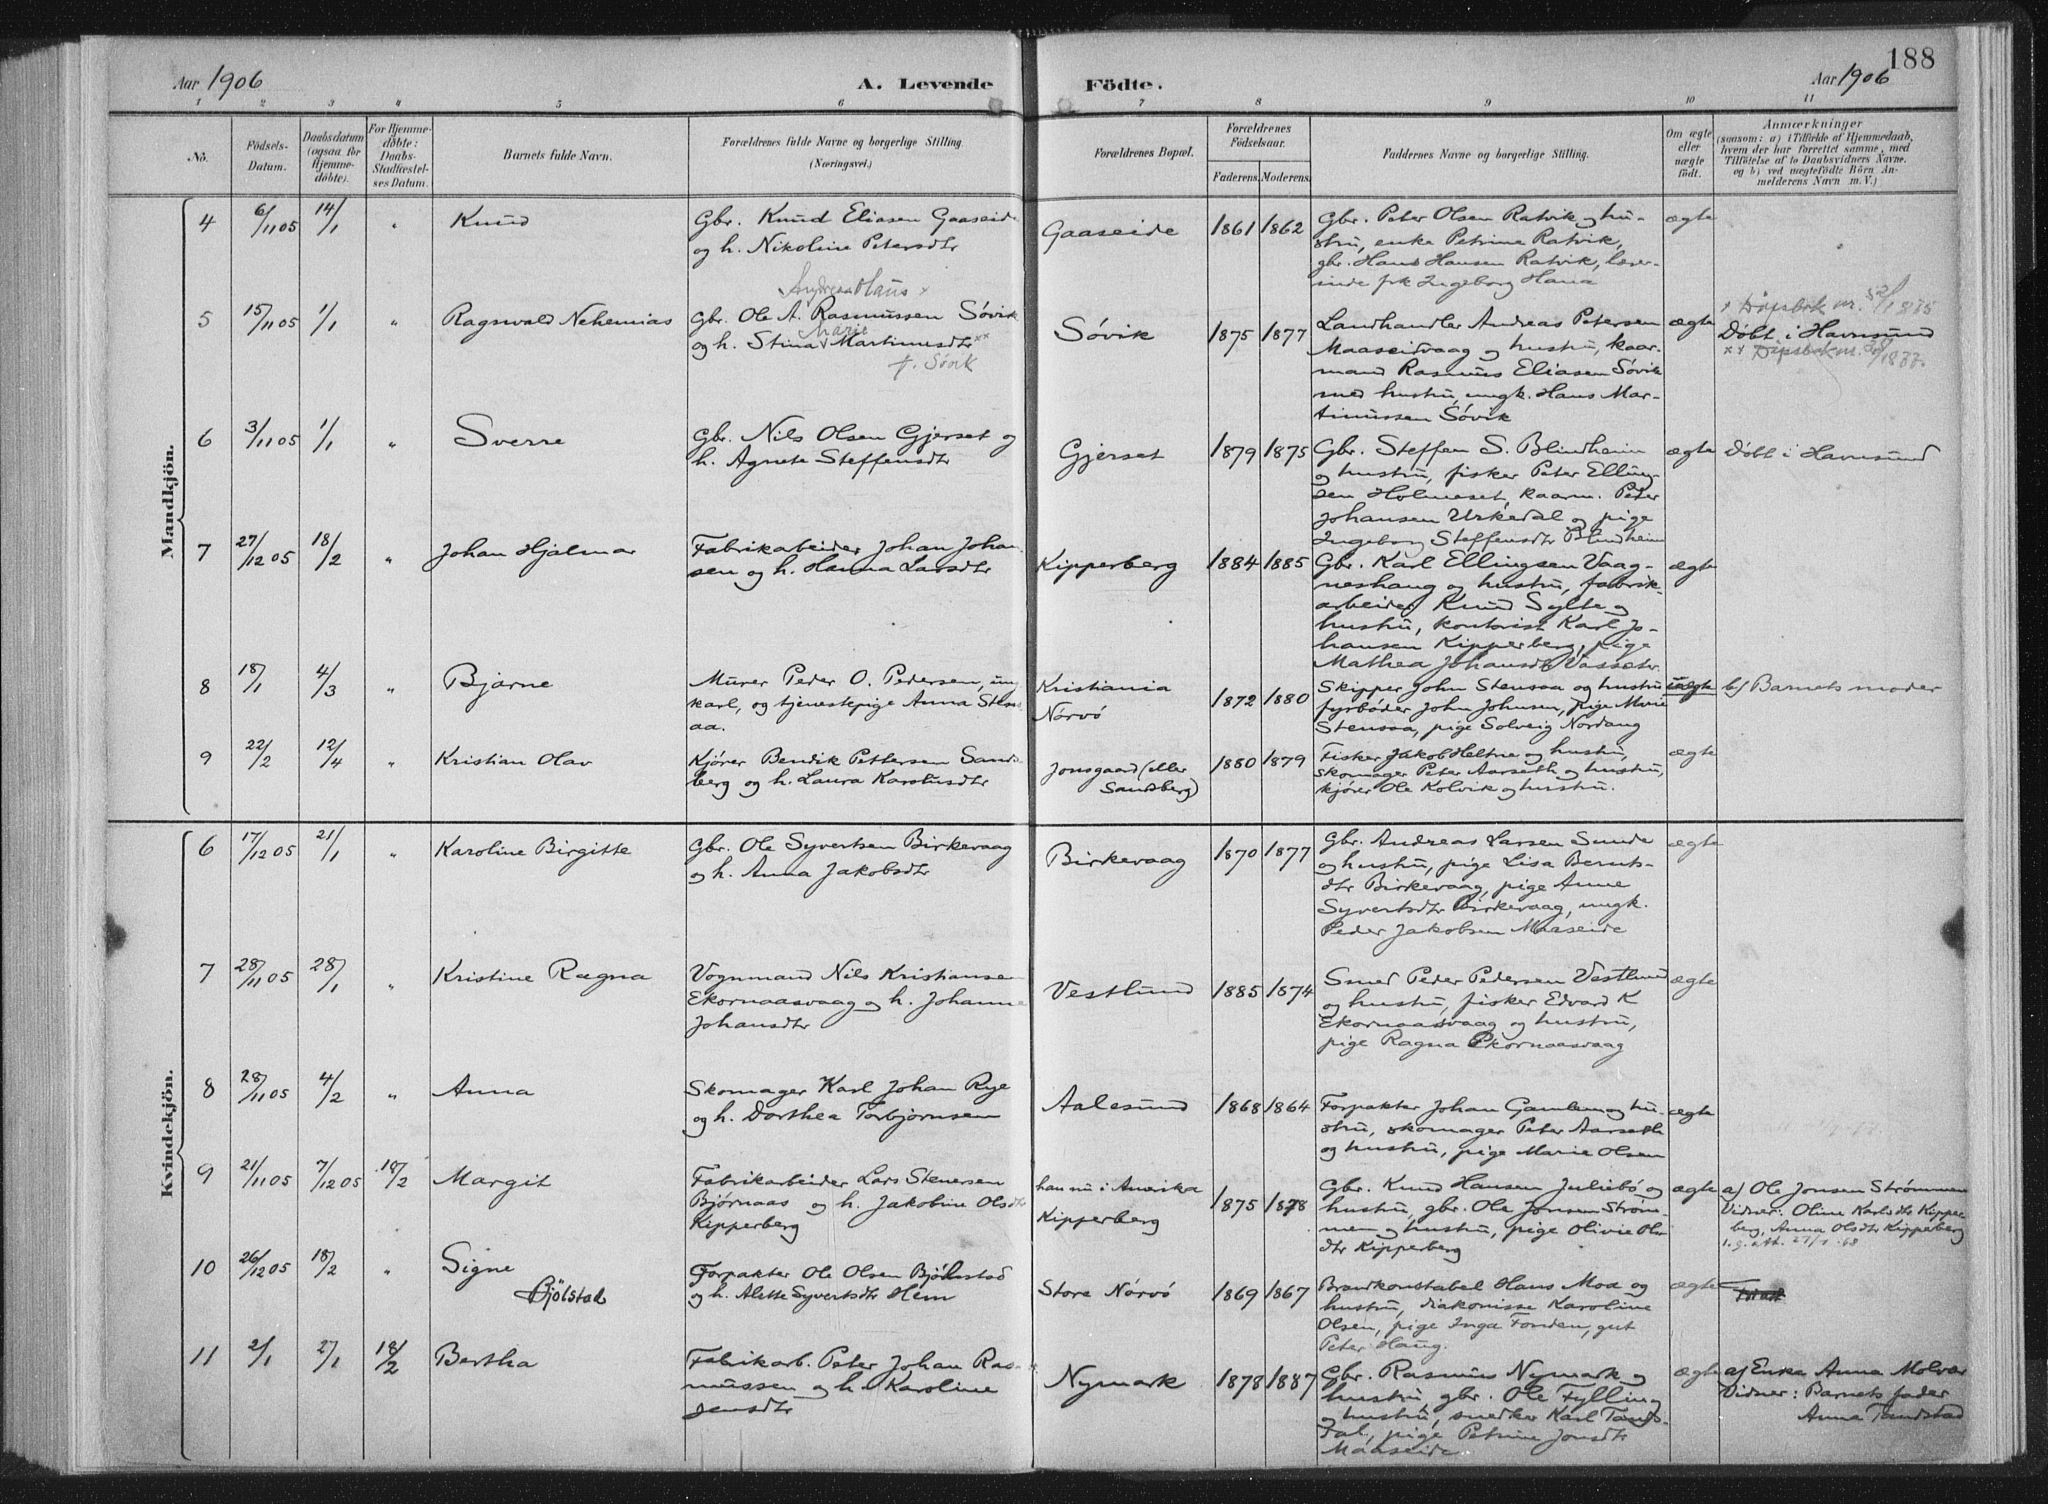 188
Aar 1906
A. Levende
Födte.
Aar 1906
1 2 3 4 5 6 7 8 9 10 11
No.
Födsels-Datum.
Daabsdatum (ogsaa for Hjemmedöbte).
For Hjemmedöbte: Daabs-Stadfæstelses Datum.
Barnets fulde Navn.
Forældrenes fulde Navne og borgerlige Stilling. (Næringsvei.)
Forældrenes Bopæl.
Forældrenes Födselsaar.
Faderens. Moderens.
Faddernes Navne og borgerlige Stilling.
Om ægte eller uægte födt.
Anmærkninger
(saasom: a) i Tilfælde af Hjemmedaab, hvem der har forrettet samme, med Tilföielse af to Daabsvidners Navne. og b) ved uægtefödte Börn Anmelderens Navn m. V.)
Mandkjön.
4 6/11 05 14/1 " Knud
Gbr. Knud Eliasen Gaaseide
og h. Nikoline Petersdtr
Gaaseide 1861 1862
Gbr. Peter Olsen Ratvik og hu-
stru, enke Petrine Ratvik,
gbr. Hans Hansen Ratvik, lærer-
inde frk Ingeborg Hana
ægte
5 15/11 05 1/1 " Ragnvald Nehemias
Andreas Claus x
Gbr. Ole A. Rasmussen Søvik
Marie
og h. Stina Martinusdtr xx
f. Søvik
Søvik 1875 1877
Landhandler Andreas Petersen
Maaseidvaag og hustru, kaar-
mand Rasmus Eliasen Søvik
med hustru, ungk. Hans Mar-
tinussen Søvik
ægte
x Døpsbok nr. 52/1875
Døbt i Havnsund
xx Døpsbok nr. /1877.
6 3/11 05 1/1 " Sverre
Gbr. Nils Olsen Gjerset og
h. Agnete Steffensdtr
Gjerset 1879 1875
Gbr. Steffen S. Blindheim
og hustru, fisker Peter Elling-
sen Holmeset, kaarm. Peter
Johansen Urkedal og pige
Ingeborg Steffensdtr Blindheim
ægte Døbt i Havnsund
7 27/12 05 18/2 " Johan Hjalmar
Fabrikarbeider Johan Johan-
sen og h. Hanna Larsdtr
Kipperberg 1884 1885
Gbr. Karl Ellingsen Vaag-
neshaug og hustru, fabrik-
arbeider Knud Sylte og
hustru, kontorist Karl Jo-
hansen Kipperberg, pige
Mathea Johansdtr Vasset
ægte
8 18/1 4/3 " Bjarne
Murer Peder O. Pedersen, ung-
karl, og tjenestepige Anna Stens-
aa.
Kristiania
Nørvø
1872 1880
Skipper John Stensaa og hustru
fyrbøder John Johnsen, pige Marie
Stensaa, pige Solveig Nordang
uægte b) Barnets moder
9 22/2 12/4 " Kristian Olav
Kjører Bendik Pettersen Sands-
berg og h. Laura Karolusdtr
Jonsgaard (eller
Sandsberg)
1880 1879
Fisker Jakob Heltne og hustru,
skomager Peter Aarseth og hustru,
kjører Ole Kolvik og hustru.
ægte
Kvindekjön.
6 17/12 05 21/1 " Karoline Birgitte
Gbr. Ole Syvertsen Birkevaag
og h. Anna Jakobsdtr
Birkevaag 1870 1877
Gbr. Andreas Larsen Sunde
og hustru, pige Lisa Bernts-
dtr Birkevaag, pige Anne
Syvertsdtr Birkevaag, ungk.
Peder Jakobsen Maaseide
ægte
7 28/11 05 28/1 " Kristine Ragna
Vognmand Nils Kristiansen
Ekornaasvaag og h. Johanne
Johansdtr
Vestlund 1885 1874
Smed Peder Pedersen Vestlund
og hustru, fisker Edvard K
Ekornaasvaag og hustru,
pige Ragna Ekornaasvaag
ægte
8 28/11 05 4/2 " Anna
Skomager Karl Johan Rye
og h. Dorthea Torbjørnsen
Aalesund 1868 1864
Forpakter Johan Gamlem og hu-
stru, skomager Peter Aarseth
og hustru, pige Marie Olsen
ægte
9 21/11 05 7/12 05 18/2 Margit
Fabrikarbeider Lars Stenersen
Bjørnaas og h. Jakobine Olsdtr
Kipperberg
han nu i Amerika
Kipperberg
1875 1878
Gbr. Knud Hansen Juliebø og
hustru, gbr. Ole Jonsen Strøm-
men og hustru, pige Olivie Ols-
dtr Kipperberg
ægte
a) Ole Jonsen Strømmen
Vidner: Oline Karlsdtr Kipper-
berg, Anna Olsdtr Kipperberg
10 26/12 05 18/2 " Signe
Bjölstad
Forpakter Ole Olsen Bjølstad
og h. Alette Syvertsdtr Hem
Store Nørvø 1869 1867
Brandkonstabel Hans Moa og
hustru, diakonisse Karoline
Olsen, pige Inga Fonden, gut
Peter Haug.
ægte
11 2/1 27/1 18/2 Bertha
Fabrikarb. Peter Johan Ras-
mussen og h. Karoline
Jensdtr
Nymark 1878 1887
Gbr. Rasmus Nymark og
hustru, gbr. Ole Fylling
og hustru, snedker Karl Tands-
dal, pige Petrine Jonsdtr
Maaseide
ægte
a) Enke Anna Molvær
Vidner: Barnets fader
Anna Tandstad